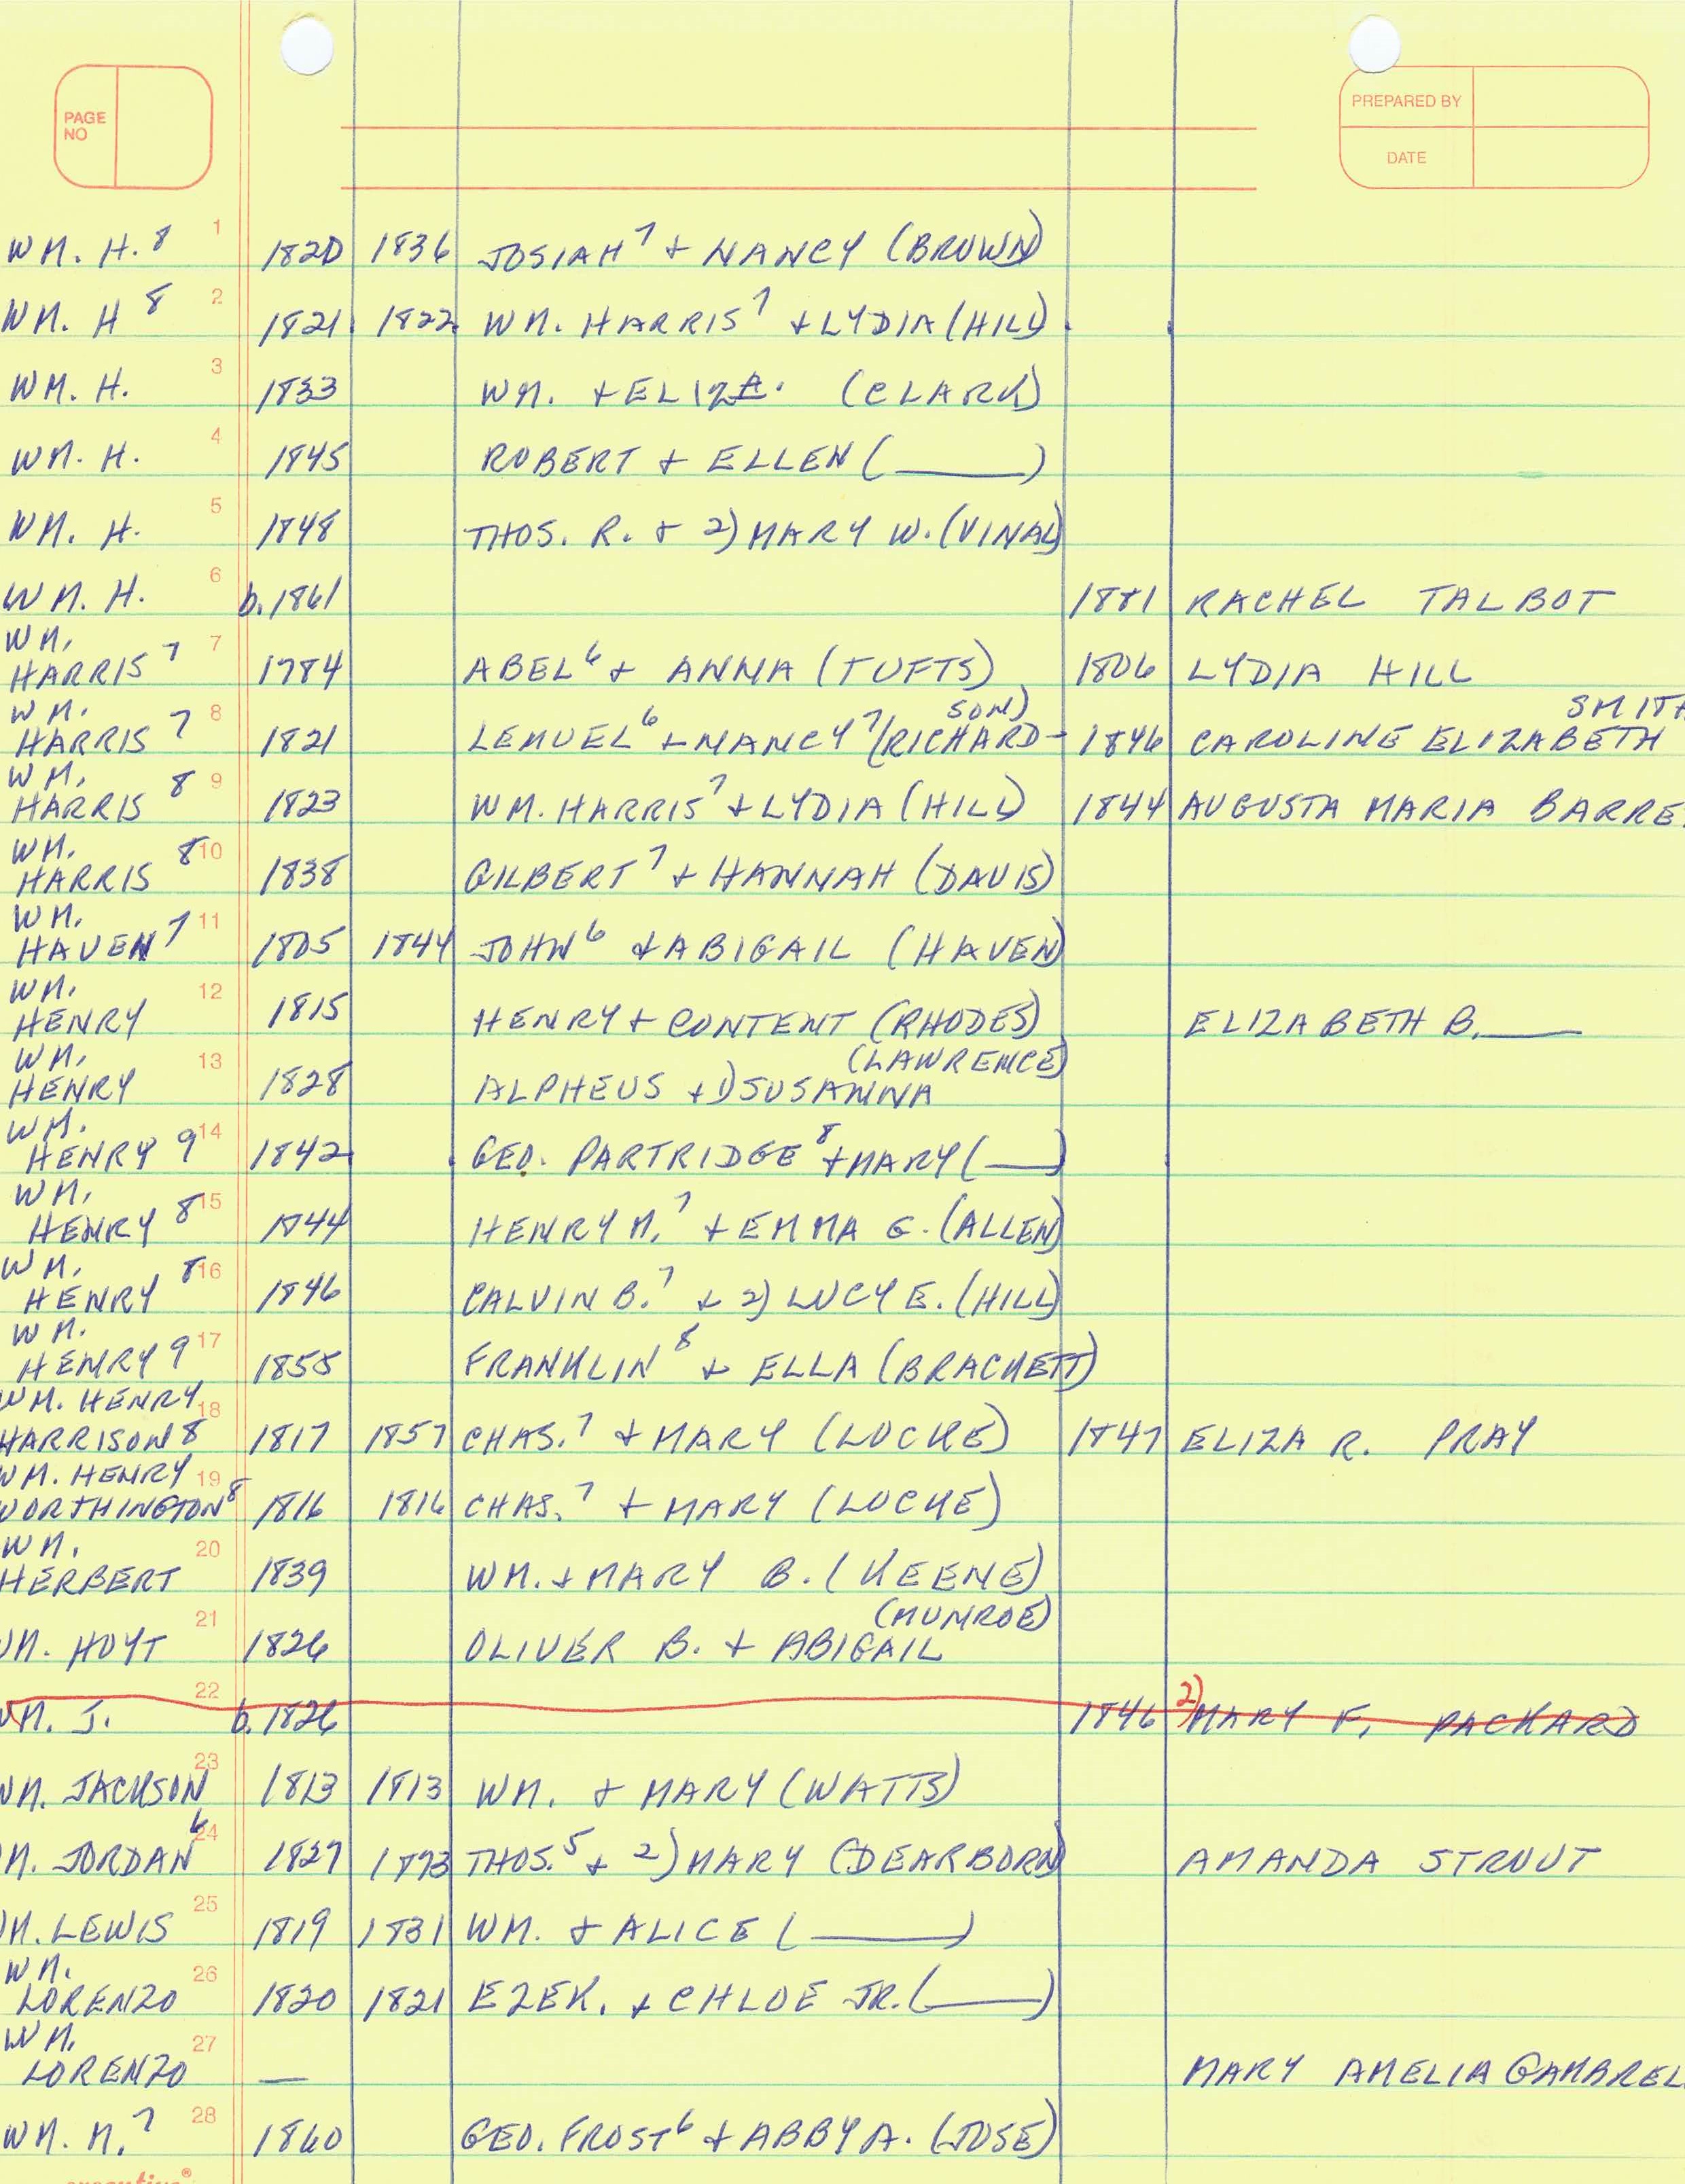 PAGE NO
PREPARED BY
DATE
1 WM. H.⁸ 1820 1836 JOSIAH⁷ + NANCY (BROWN)
2 WM. H⁸ 1821 1822 WM. HARRIS⁷ + LYDIA (HILL)
3 WM. H. 1833 WM. + ELIZA. (CLARK)
4 WM. H. 1845 ROBERT + ELLEN (____)
5 WM. H. 1848 THOS. R. + 2) MARY W. (VINAL)
6 WM. H. b. 1861 1881 RACHEL TALBOT
7 WM. HARRIS⁷ 1784 ABEL⁶ + ANNA (TUFTS) 1806 LYDIA HILL
8 WM. HARRIS⁷ 1821 LEMUEL⁶ + NANCY⁷ (RICHARD-SON) 1846 CAROLINE ELIZABETH SMITH
9 WM. HARRIS⁸ 1823 WM. HARRIS⁷ + LYDIA (HILL) 1844 AUGUSTA MARIA BARRE
10 WM. HARRIS⁸ 1838 GILBERT⁷ + HANNAH (DAVIS)
11 WM. HAVEN⁷ 1805 1844 JOHN⁶ + ABIGAIL (HAVEN)
12 WM. HENRY 1815 HENRY + CONTENT (RHODES) ELIZABETH B. ____
13 WM. HENRY 1828 ALPHEUS + 1) SUSANNA (LAWRENCE)
14 WM. HENRY⁹ 1842 GEO. PARTRIDGE⁸ + MARY (____)
15 WM. HENRY⁸ 1844 HENRY M.⁷ + EMMA G. (ALLEN)
16 WM. HENRY⁸ 1846 CALVIN B.⁷ + 2) LUCY E. (HILL)
17 WM. HENRY⁹ 1858 FRANKLIN⁸ + ELLA (BRACKETT)
18 WM. HENRY HARRISON⁸ 1817 1857 CHAS.⁷ + MARY (LOCKE) 1847 ELIZA R. PRAY
19 WM. HENRY WORTHINGTON⁸ 1816 1816 CHAS.⁷ + MARY (LOCKE)
20 WM. HERBERT 1839 WM. + MARY B. (KEENE)
21 WM. HOYT 1826 OLIVER B. + ABIGAIL (MUNROE)
22 WM. J. b. 1826 1846 2) MARY F. PACKARD
23 WM. JACKSON 1813 1813 WM. + MARY (WATTS)
24 M. JORDAN⁶ 1827 1893 THOS.⁵ + 2) MARY (DEARBORN) AMANDA STROUT
25 M. LEWIS 1819 1831 WM. + ALICE (____)
26 WM. LORENZO 1820 1821 EZEK. + CHLOE JR. (____)
27 WM. LORENZO — MARY AMELIA GAMBREL
28 WM. M.⁷ 1860 GEO. FROST⁶ + ABBY A. (JOSE)